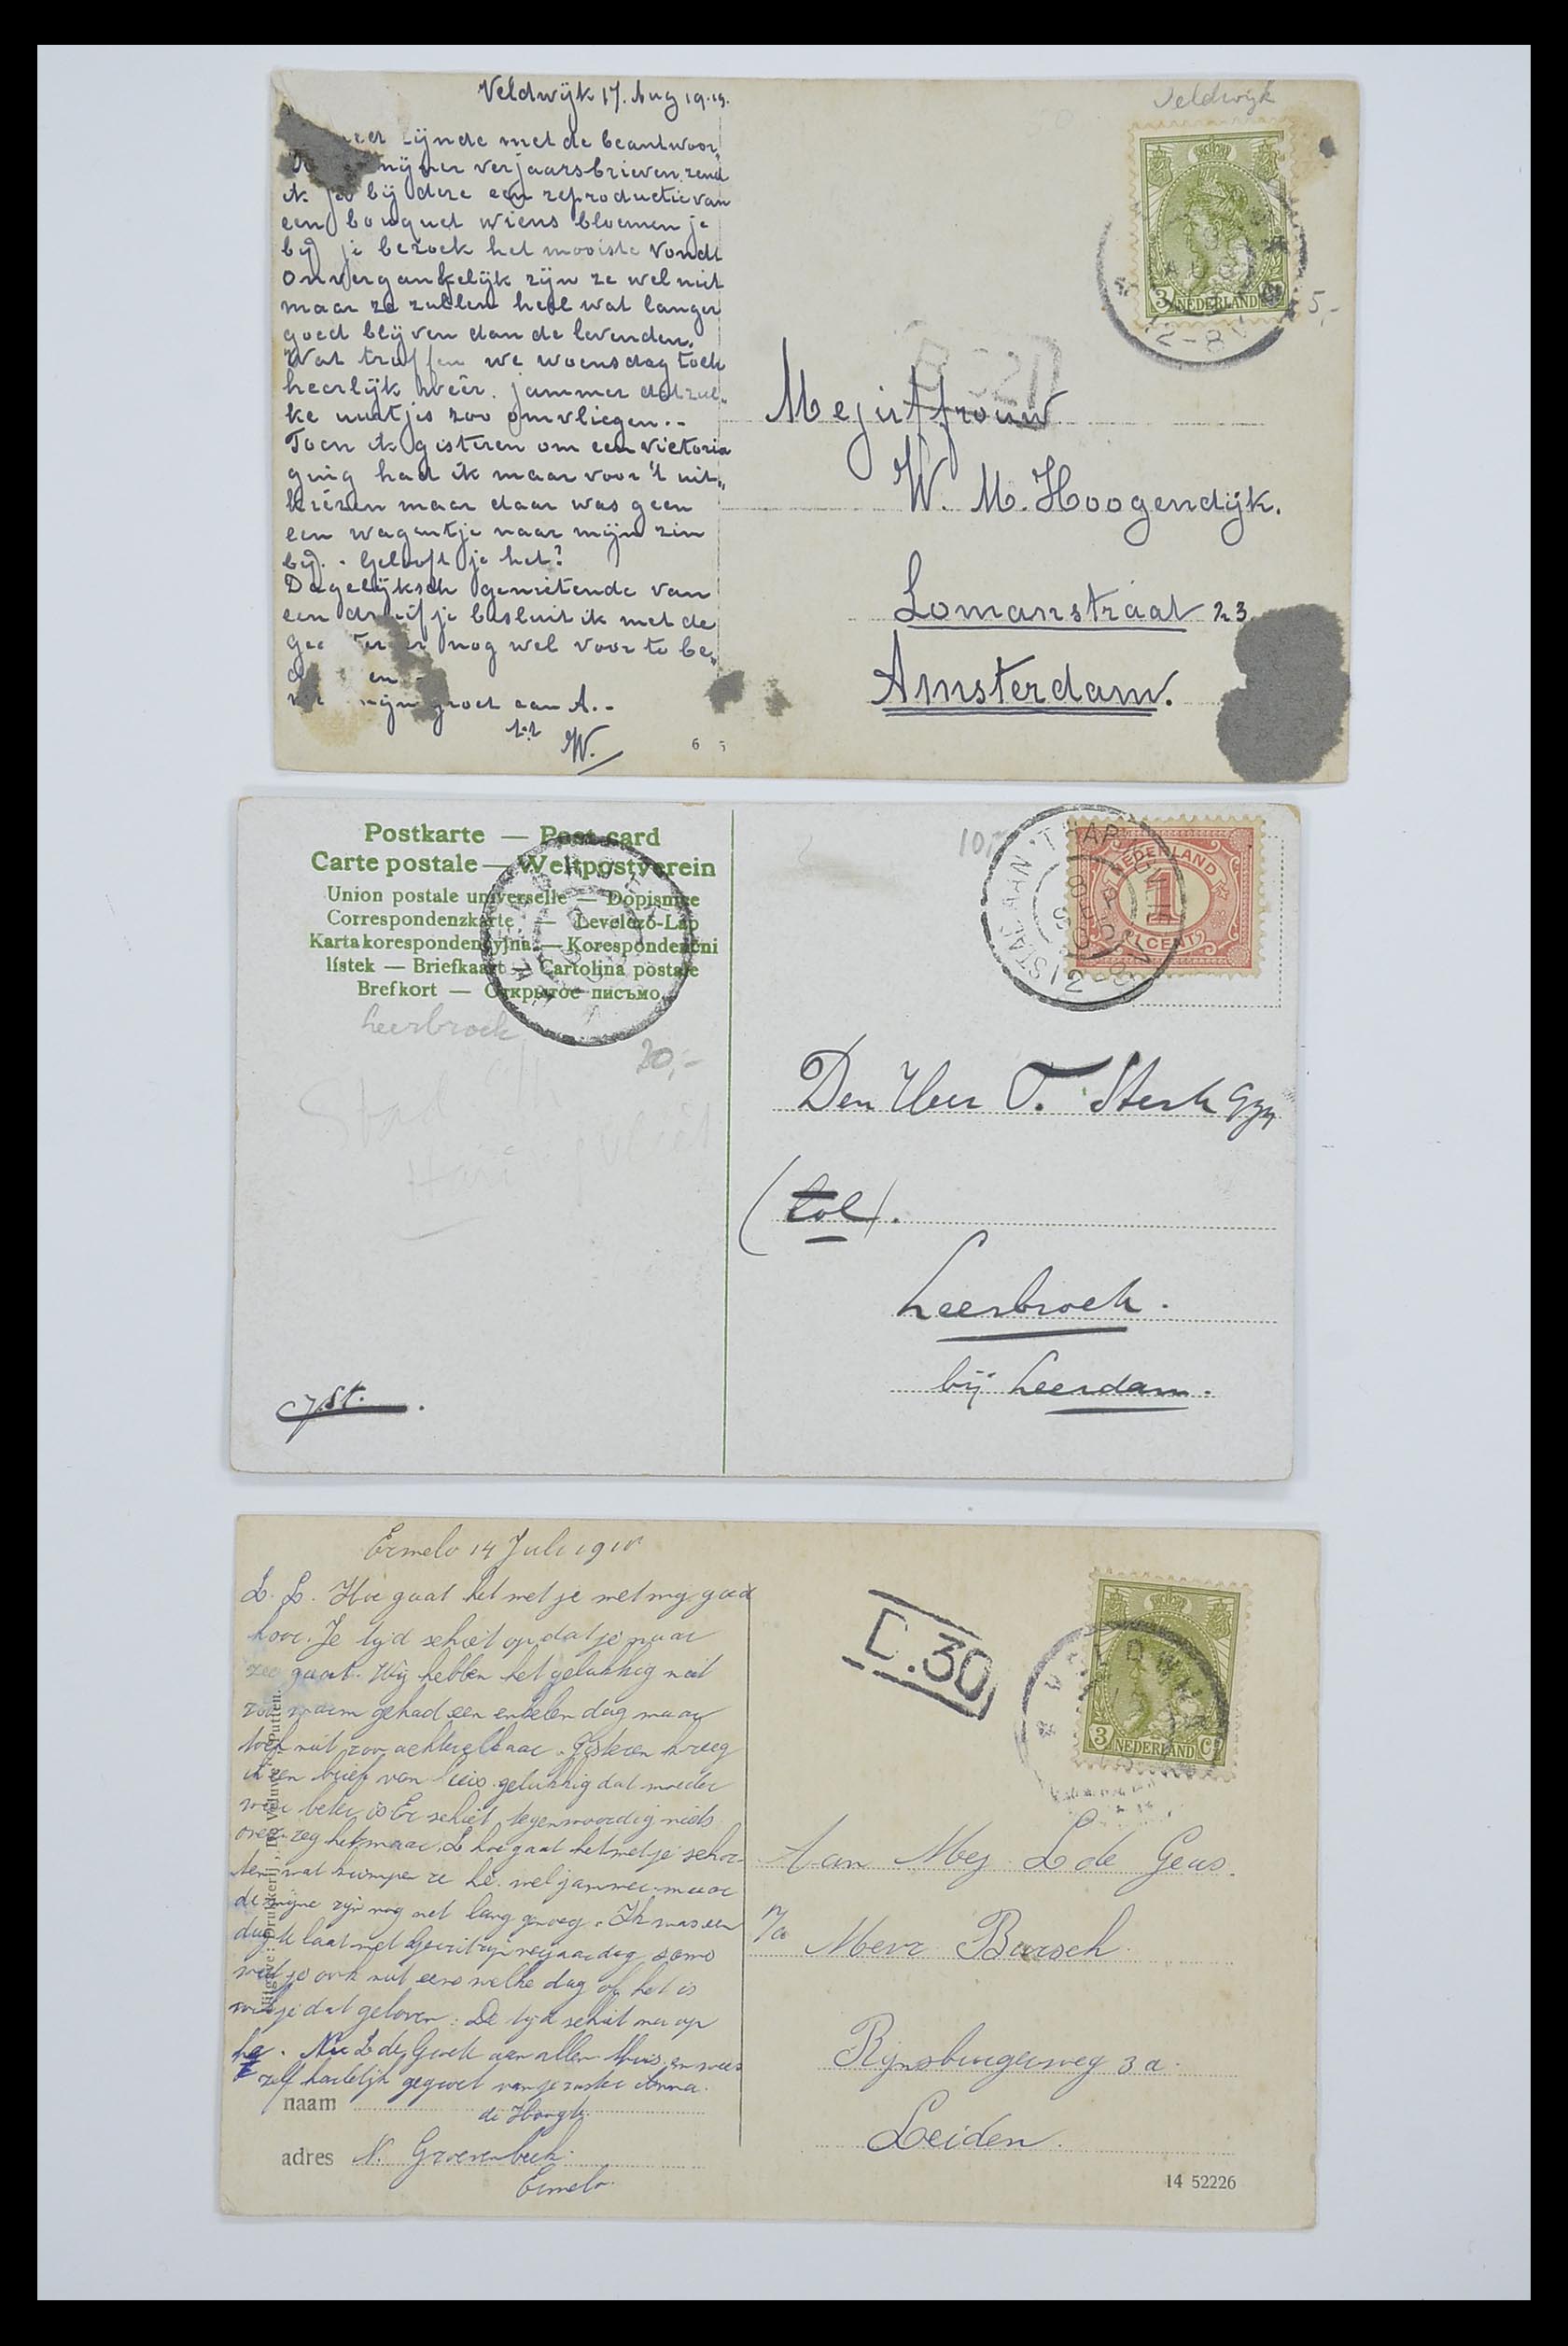 Veldwijk 17. Aug 19.19.
Veldwijk
eer zijnde met de beantwoor„
mijner verjaarsbrieven, zend
ik je bij deze een reproductie van
een bouquet wiens bloemen je
bij je bezoek het mooiste vondt
Onvergankelijk zijn ze wel niet
maar ze zullen heel wat langer
goed blijven dan de levenden.
Wat troffen we woensdag toch
heerlijk weêr. jammer dat zul„
ke uurtjes zoo omvliegen..
Toen ik gisteren om een victoria
ging had ik maar voor 't uit„
kiezen maar daar was geen
een wagentje naar mijn zin
bij. . Geloof je het?
Dagelijksch genietende van
een druifje besluit ik met de
nog wel voor te be„
en
mijn groet aan A..
t.t.
W.
6 5
3 NEDERLAND Ct
AUG
5,-
Mejuffrouw
W. M. Hoogendijk.
Lomanstraat 23
Amsterdam.
Postkarte — Post card
Carte postale — Weltpostverein
Union postale universelle — Dopisnice
Correspondenzkarte — Levelező-Lap
Karta korespondencyjna — Korespondenční
lístek — Briefkaart — Cartolina postale
Brefkort — Открытое письмо
Leerbroek
20,-
10,-
NEDERLAND
1
1 CENT
Den Heer T. Sterk Gzn
(tol).
Leerbroek.
bij Leerdam.
St.
Ermelo 14 Juli 191
L. L. Hoe gaat het met je met mij goed
hoor. Je tijd schiet op dat je naar
zee gaat. Wij hebben het gelukkig niet
zoo warm gehad een enkelen dag maar
toch niet zoo achter elkaar. Gisteren kreeg
ik een brief van huis gelukkig dat moeder
weer beter is Er schiet tegenwoordig niets
over zeg het maar. L hoe gaat het met je
wat he. wel jammer maar
de mijne zijn nog niet lang genoeg. Ik was een
dag te laat met Gerrit zijn verjaardag soms
weet je ook niet eens welke dag of het is
wil je dat geloven. De tijd schiet maar op
he. Nu L de Groete aan allen thuis en wees
zelf hartelijk gegroet van je zuster Anna.
naam
adres N. Groevenbeek
Ermelo.
Uitgave: Drukkerij De Veluwe Nunspeet.
C.30
VELDWIJK
3 NEDERLAND Ct
Aan Mej L de Geus.
p/a Mevr Bursch.
Rijnsburgerweg 3a.
Leiden.
14 52226